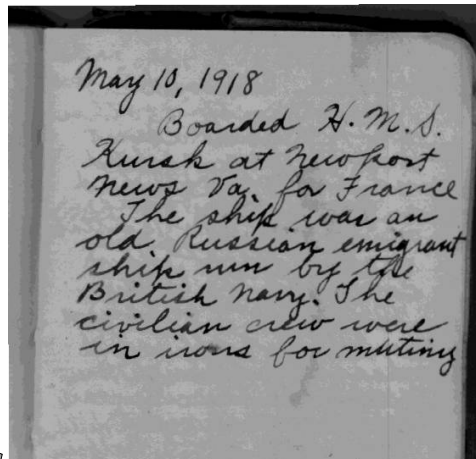 May 10, 1918
Boarded H. M. S.
Kursk at Newport
News Va. for France
The ship was an
old Russian emigrant
ship run by the
British Navy. The
civilian crew were
in irons for mutiny